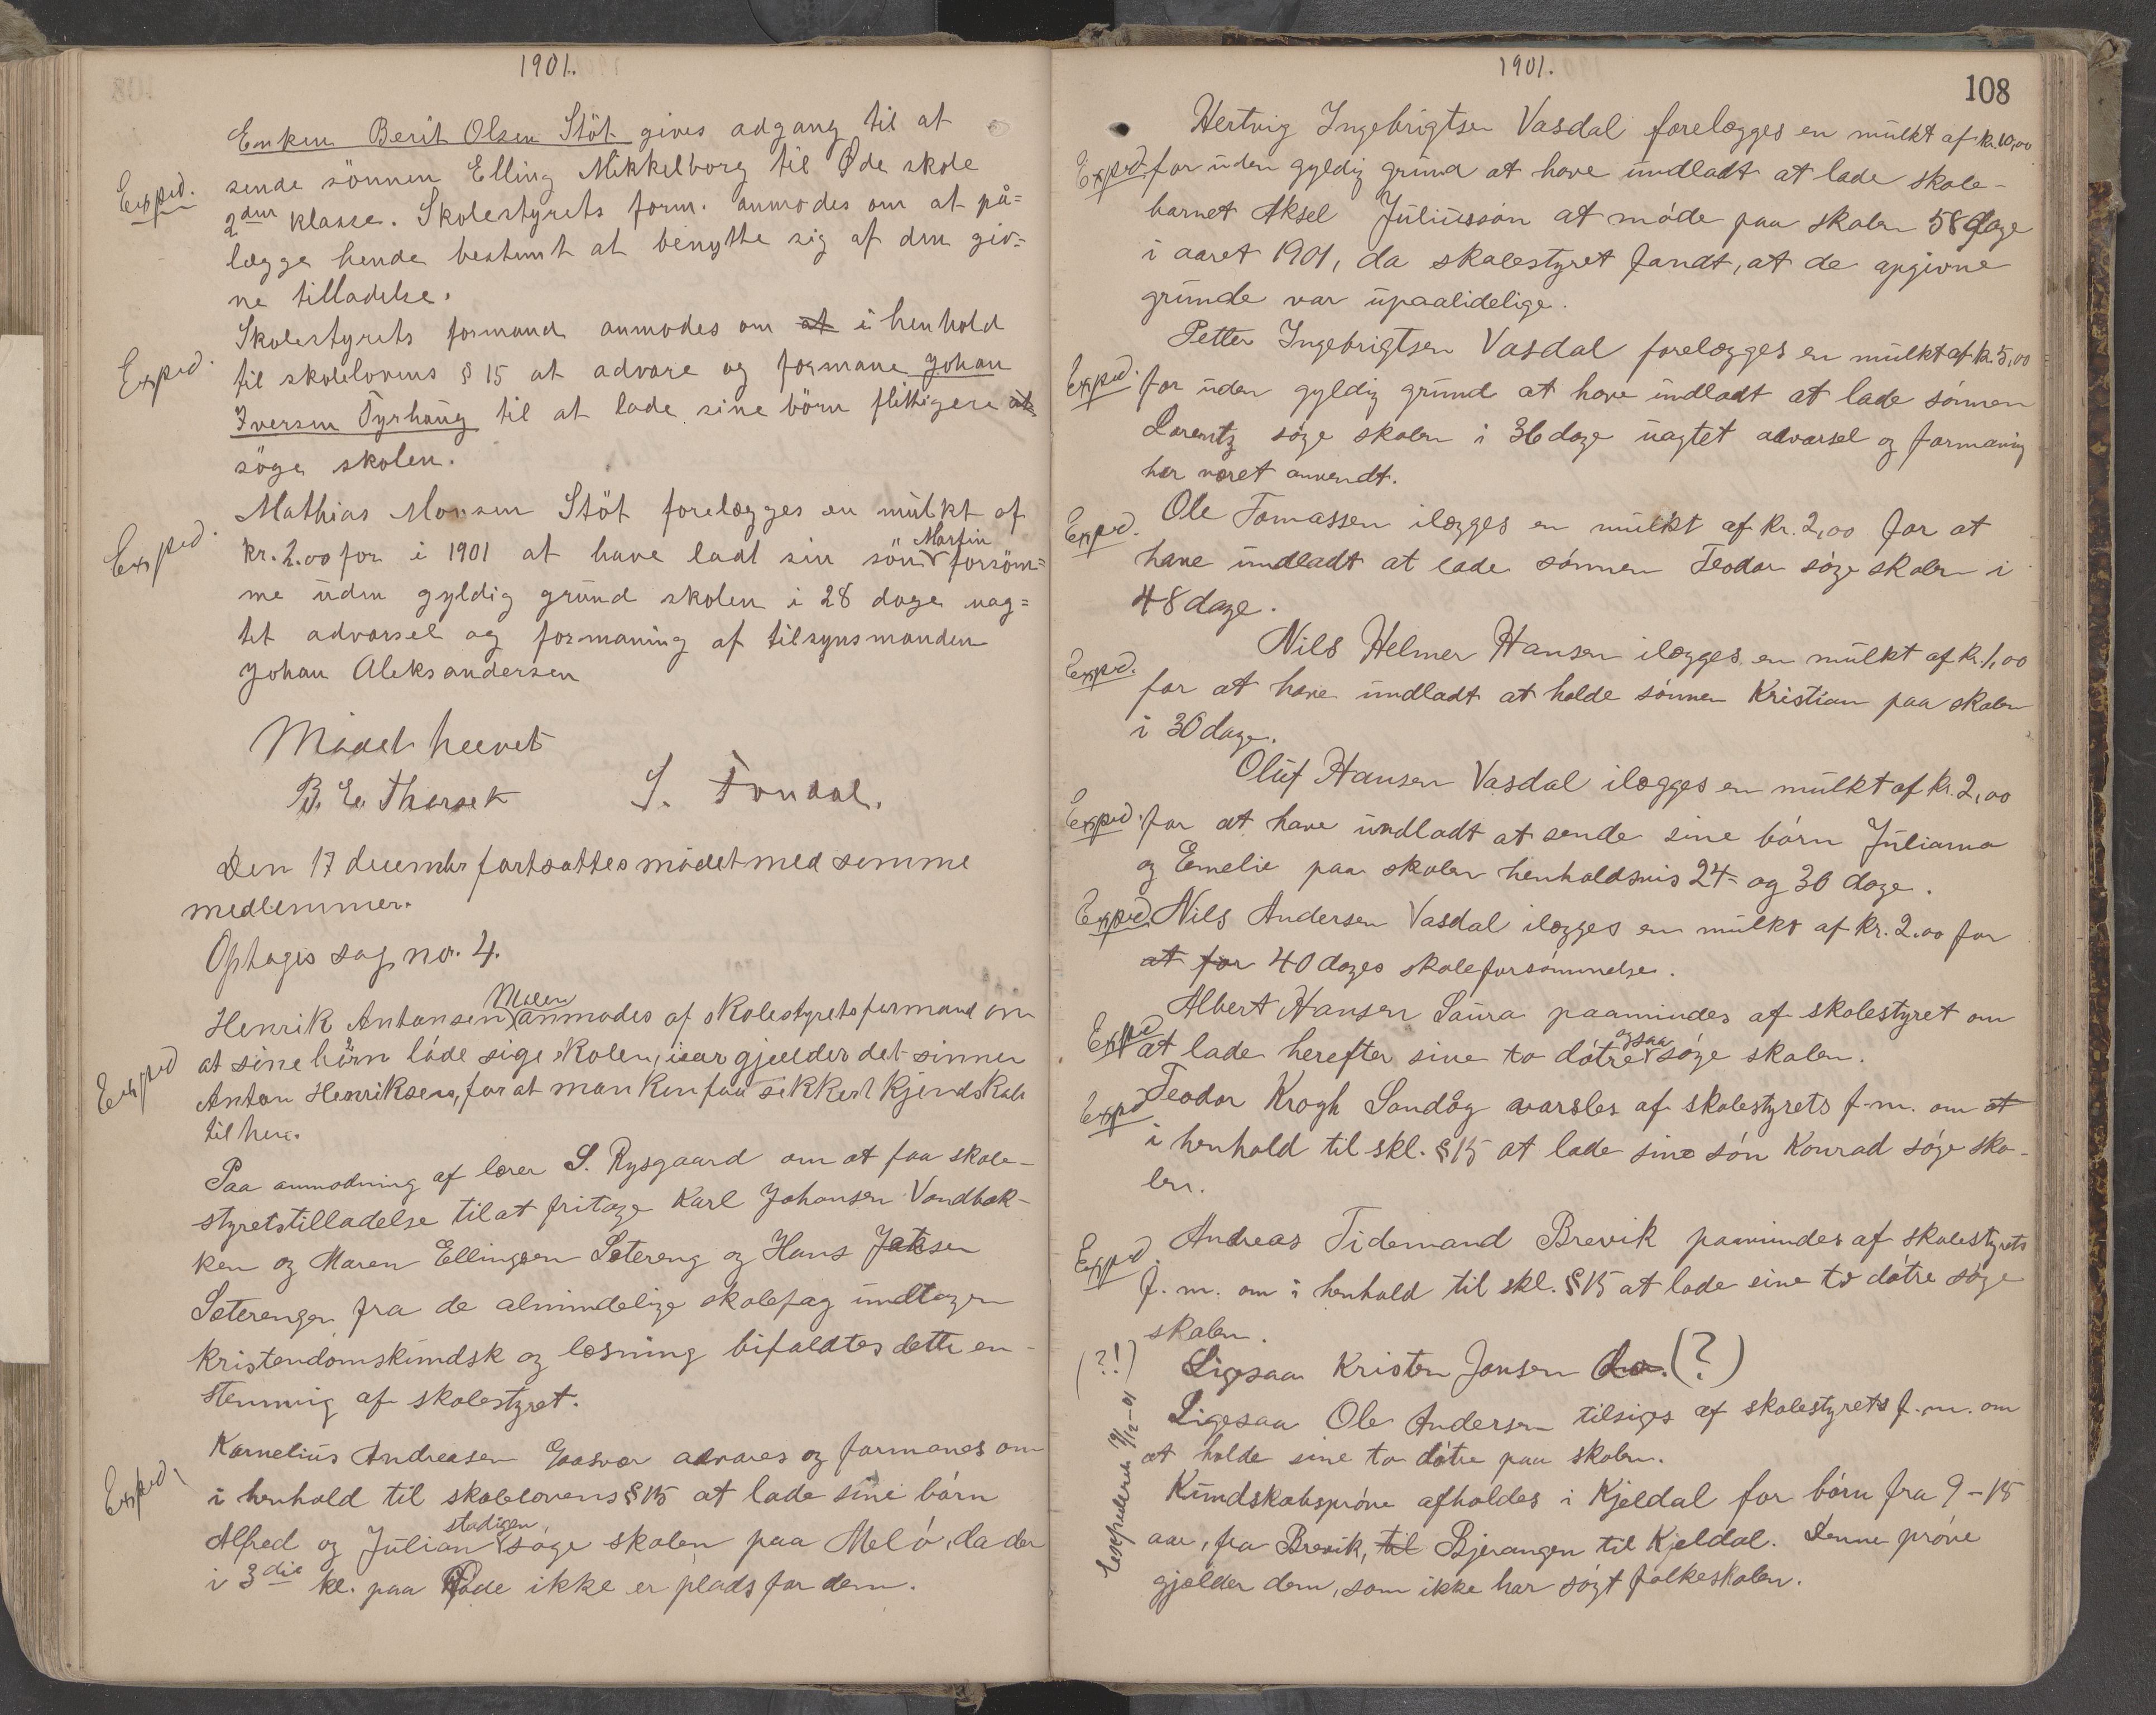 1901.
Enken Berit Olsen Stöt gives adgang til at
Exped. sende sönnen Elling Mikkelborg til Öde skole
2den klasse. Skolestyrets form. anmodes om at på=
lægge hende bestemt at benytte sig af den giv=
ne tilladelse.
Skolestyrets formand anmodes om at i henhold
Exped. til skolelovens § 15 at advare og formane Johan
Iversen Tyrhaug til at lade sine börn flittigere at
söge skolen.
Mathias Monsen Stöt forelægges en mulkt af
Exped. kr. 2.00 for i 1901 at have ladt sin sön Martin forsöm=
me uden gyldig grund skolen i 28 dage uag=
tet advarsel og formaning af tilsynsmanden
Johan Aleksandersen
Mödet hævet
B. E. Thorsek S. Fondal.
Den 17 decembr fortsattes mödet med samme
medlemmer.
Optages sag no. 4.
Henrik Antonsen Meløen anmodes af skolestyrets formand om
Exped at sine börn lade søge skolen, især gjælder det sønnen
Anton Henriksen, for at man kan faa sikkert kjendskab
til ham.
Paa anmodning af lærer S. Rysgaard om at faa skole-
styrets tilladelse til at fritage Karl Johansen Vandbak-
ken og Maren Ellingsen Sætereng og Hans Jaksen
Sæterengen fra de almindelige skolefag undtagen
kristendomskundsk og læsning bifaldtes dette en-
stemmig af skolestyret.
Kornelius Andreasen Gaasvær advares og formanes om
Exped. i henhold til skolelovens § 15 at lade sine börn
Alfred og Julian stadigen söge skolen paa Melö, da der
i 3die kl. paa Øde ikke er plads for dem.
1901.
108
Hertvig Ingebrigtsen Vasdal forelægges en mulkt af kr. 10,00
Exped. for uden gyldig grund at have undladt at lade skole-
barnet Aksel Juliusson at möde paa skolen 58 dage
i aaret 1901, da skolestyret fandt, at de opgivne
grunde var upaalidelige.
Petter Ingebrigtsen Vasdal forelægges en mulkt af kr. 5,00
Exped. for uden gyldig grund at have undladt at lade sönnen
Lorentz söge skolen i 36 dage uagtet advarsel og formaning
har været anvendt.
Exped. Ole Tomassen ilægges en mulkt af kr. 2,00 for at
have undladt at lade sönnen Teodor söge skolen i
48 dage.
Nils Helmer Hansen ilægges en mulkt af kr. 1,00
Exped. for at have undladt at holde sönnen Kristian paa skolen
i 30 dage.
Oluf Hansen Vasdal ilægges en mulkt af kr. 2,00
Exped. for at have undladt at sende sine börn Juliana
og Emelie paa skolen henholdsvis 24 og 30 dage.
Exped. Nils Andersen Vasdal ilægges en mulkt af kr. 2.00 for
at for 40 dages skoleforsömmelse.
Albert Hansen Saura paamindes af skolestyret om
Exped at lade herefter sine to dötre ogsaa söge skolen.
Exped Teodor Krogh Sandåg varsles af skolestyrets f.m. om at
i henhold til skl. § 15 at lade sine sön Konrad söge sko-
len.
Exped. Andreas Tidemand Brevik paamindes af skolestyrets
f.m. om i henhold til skl. § 15 at lade sine to dötre söge
skolen.
(?!) Ligesaa Kristen Jonsen do. (?)
Ligesaa Ole Andersen tilsiges af skolestyrets f.m. om
at holde sine to dötre paa skolen.
Kundskabspröve afholdes i Kjeldal for börn fra 9-15
aar, fra Brevik, til Bjerangen til Kjeldal. Denne pröve
gjælder dem, som ikke har sögt folkeskolen.
Expederet 19/12-01